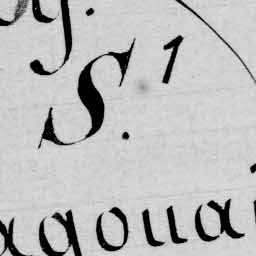 S.¹
agouai